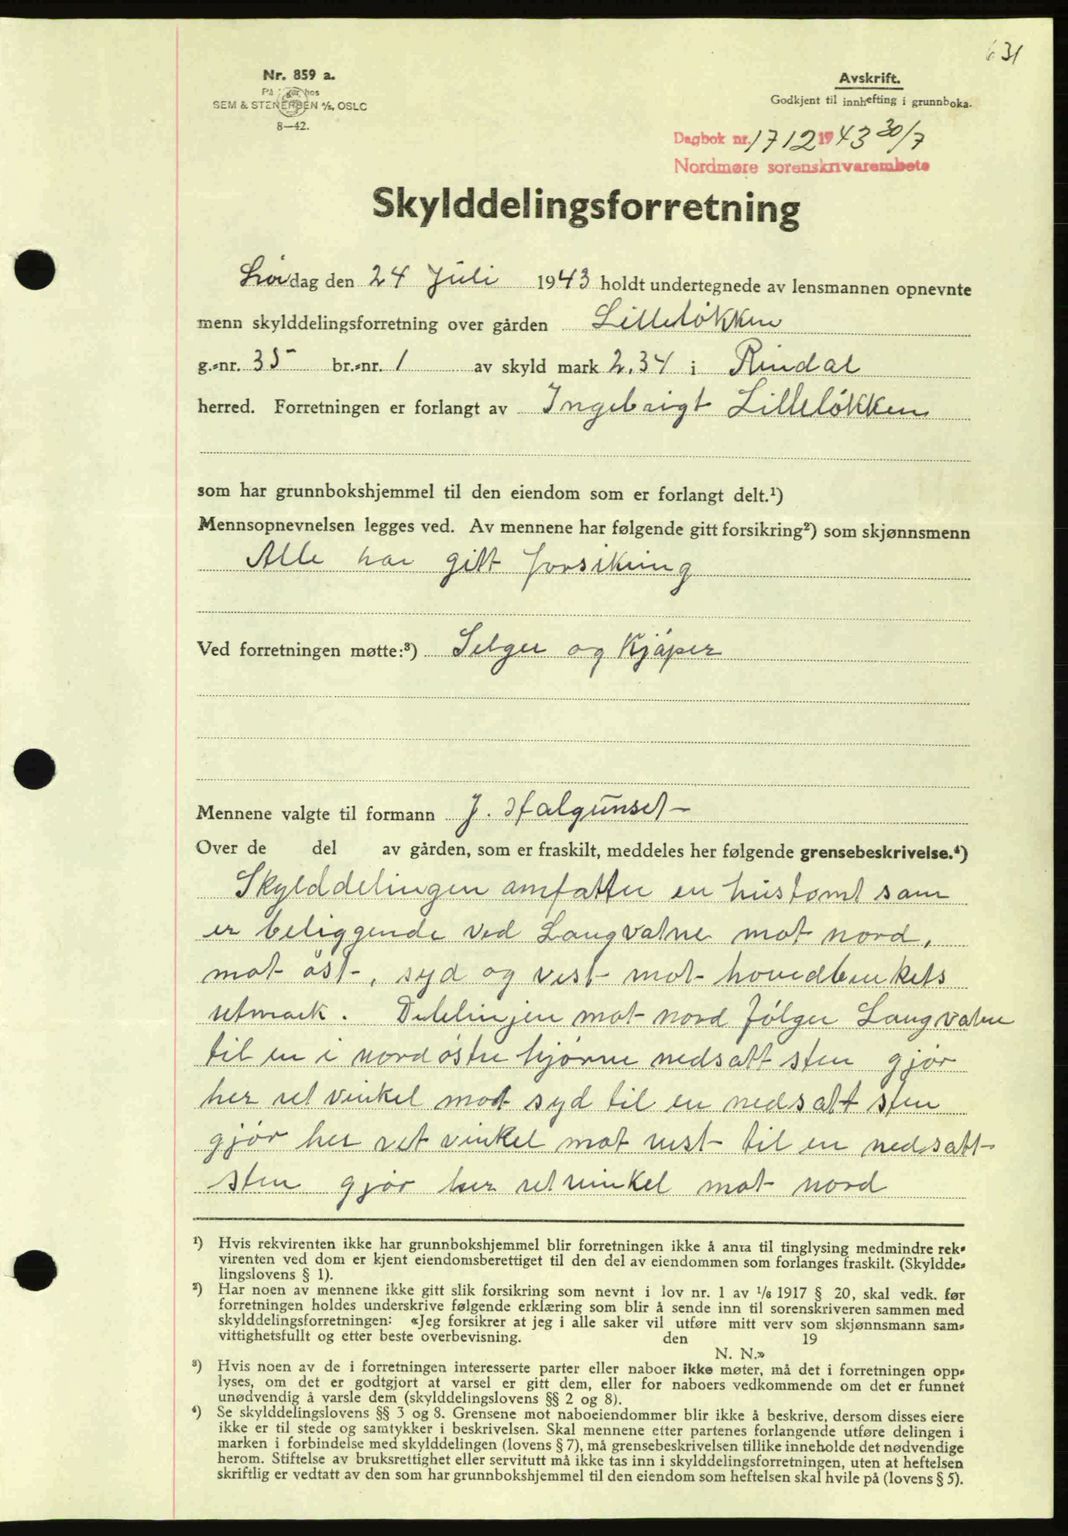 631
Nr. 859 a.
SEM & STENERSEN A/S, OSLO
8—42.
Avskrift.
Godkjent til innhefting i grunnboka.
Dagbok nr. 1712 1943 30/7
Nordmøre sorenskrivarembete
Skylddelingsforretning
Lördag den 24 Juli 1943 holdt undertegnede av lensmannen opnevnte
menn skylddelingsforretning over gården Lillelökken
g.-nr. 35 br.-nr. 1 av skyld mark 2.34 i Rindal
herred. Forretningen er forlangt av Ingebrigt Lillelökken
som har grunnbokshjemmel til den eiendom som er forlangt delt.¹)
Mennsopnevnelsen legges ved. Av mennene har følgende gitt forsikring²) som skjønnsmenn
Alle har gitt forsikring
Ved forretningen møtte:³) Selger og Kjöper
Mennene valgte til formann J. Halgunset
Over de del av gården, som er fraskilt, meddeles her følgende grensebeskrivelse.⁴)
Skylddelingen omfatter en hustomt som
er beliggende ved Langvatne mot nord,
mot öst, syd og vest mot hovedbrukets
utmark. Delelinjen mot nord fölger Langvatne
til en i nordöstre hjörne nedsatt sten gjör
her ret vinkel mot syd til en nedsatt sten
gjör her ret vinkel mot vest til en nedsatt
sten gjör her ret vinkel mot nord
¹) Hvis rekvirenten ikke har grunnbokshjemmel blir forretningen ikke å anta til tinglysing medmindre rek-
virenten ved dom er kjent eiendomsberettiget til den del av eiendommen som forlanges fraskilt. (Skyldde-
lingslovens § 1).
²) Har noen av mennene ikke gitt slik forsikring som nevnt i lov nr. 1 av 1/6 1917 § 20, skal vedk. før
forretningen holdes underskrive følgende erklæring som blir å sende inn til sorenskriveren sammen med
skylddelingsforretningen: «Jeg forsikrer at jeg i alle saker vil utføre mitt verv som skjønnsmann sam-
vittighetsfullt og etter beste overbevisning. den 19
N. N.»
³) Hvis noen av de i forretningen interesserte parter eller naboer ikke møter, må det i forretningen opp-
lyses, om det er godtgjort at varsel er gitt dem, eller for naboers vedkommende om det er funnet
unødvendig å varsle dem (skylddelingslovens §§ 2 og 8).
⁴) Se skylddelingslovens §§ 3 og 8. Grensene mot naboeiendommer blir ikke å beskrive, dersom disses eiere
ikke er til stede og samtykker i beskrivelsen. Skal mennene etter partenes forlangende utføre delingen i
marken i forbindelse med skylddelingen (lovens § 7), må grensebeskrivelsen tillike inneholde det nødvendige
herom. Stiftelse av bruksrettighet eller servitutt må ikke tas inn i skylddelingsforretningen, uten at heftelsen
skriftlig er vedtatt av den som har grunnbokshjemmel til den eiendom som heftelsen skal hvile på (lovens § 5).